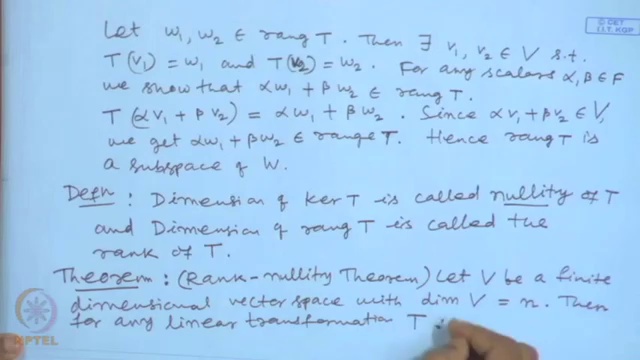 © CET
I.I.T. KGP
Let w₁, w₂ ∈ rang T. Then ∃ v₁, v₂ ∈ V s.t.
T(v₁) = w₁ and T(v₂) = w₂. For any scalars α, β ∈ F
we show that αw₁ + βw₂ ∈ rang T.
T(αv₁ + βv₂) = αw₁ + βw₂. Since αv₁ + βv₂ ∈ V,
we get αw₁ + βw₂ ∈ range T. Hence rang T is
a subspace of W.
Defn: Dimension of ker T is called nullity of T
and Dimension of rang T is called the
rank of T.
Theorem: (Rank-nullity Theorem) Let V be a finite
dimensional vector space with dim V = n. Then
for any linear transformation T
NPTEL